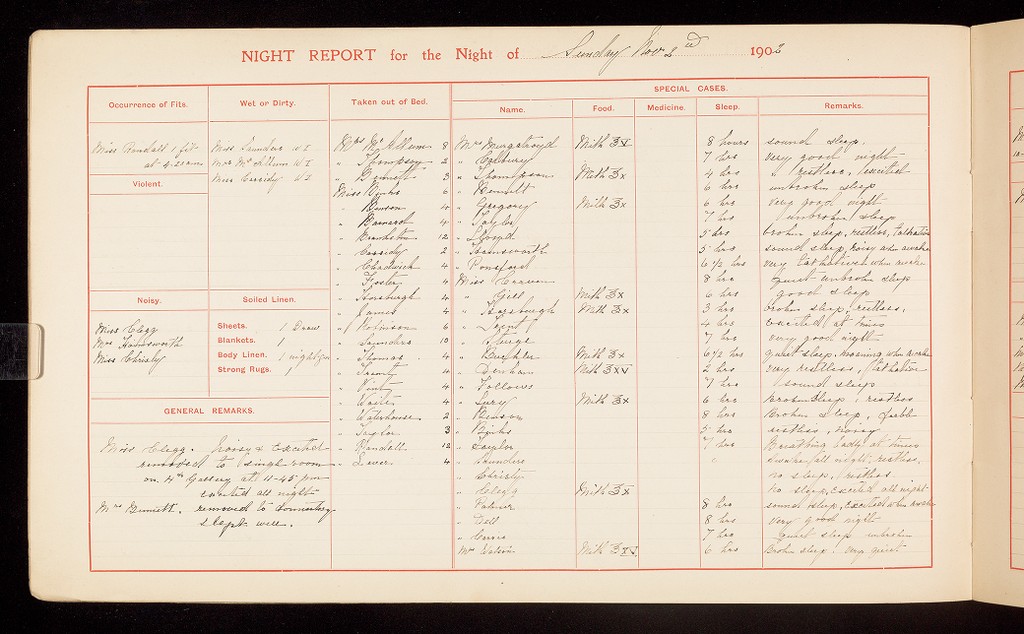 NIGHT REPORT for the Night of Sunday Nov 2nd 1902
Occurrence of Fits.
Miss Randall 1 fit
at 4-20 am
Violent.
Noisy.
Miss Clegg
Mrs Hainsworth
Miss Christy
Wet or Dirty.
Miss Saunders W I
Mrs McAllum W I
Miss Cassidy W I
Soiled Linen.
Sheets. 1 Draw
Blankets. 1
Body Linen. 1 nightgown
Strong Rugs. 1
GENERAL REMARKS.
Miss Clegg. Noisy & Excited
removed to single room
on 4th Gallery at 11-45 pm
excited all night
Mrs Bennett. removed to
slept well.
Taken out of Bed.
Mrs McAllum 8
" Thompson 2
" Bennett 3
Miss Binks 6
" Benson 4
" Barnard 4
" 12
" Cassidy 2
" Chadwick 4
" Foster 4
" Horsburgh 4
" James 4
" Robinson 6
" Saunders 10
" Thomas 4
" 4
" 4
" Waite 4
" Waterhouse 2
" Taylor 3
" Randall 12
" Lever 4
SPECIAL CASES.
Name. Food. Medicine. Sleep. Remarks.
Mrs Murgatroyd Milk ℥ X 8 hours sound sleep.
" 7 hrs very good night
" Thompson Milk ℥ x 4 hrs " restless, excited
" Bennett 6 hrs unbroken sleep
" Gregory Milk ℥ x 6 hrs very good night
" Taylor 7 hrs unbroken sleep
" Lloyd 5 hrs broken sleep, restless, talkative
" Hainsworth 5 hrs sound sleep, noisy when awake
" Ponsford 6 1/2 hrs very talkative when awake
Miss 8 hrs quiet unbroken sleep
" Gill Milk ℥ x 6 hrs good sleep
" Horsburgh Milk ℥ x 3 hrs broken sleep, restless,
" 4 hrs excited at times
" Sturge 7 hrs very good night
" Milk ℥ x 6 1/2 hrs quiet sleep, moaning when awake
" Denham Milk ℥ XV 2 hrs very restless, talkative
" Follows 7 hrs sound sleep
" Milk ℥ x 6 hrs broken sleep, restless
" Benson 8 hrs Broken sleep,
" Binks 5 hrs restless, noisy
" Taylor 7 hrs Breathing badly at times
" Saunders awake all night, restless,
" Christy no sleep, restless
" Clegg Milk ℥ x no sleep, Excited all night
" Palmer 8 hrs sound sleep, Excited when awake
" 8 hrs very good night
" 7 hrs quiet sleep unbroken
Mrs Watson Milk ℥ XV 6 hrs Broken sleep. Very quiet